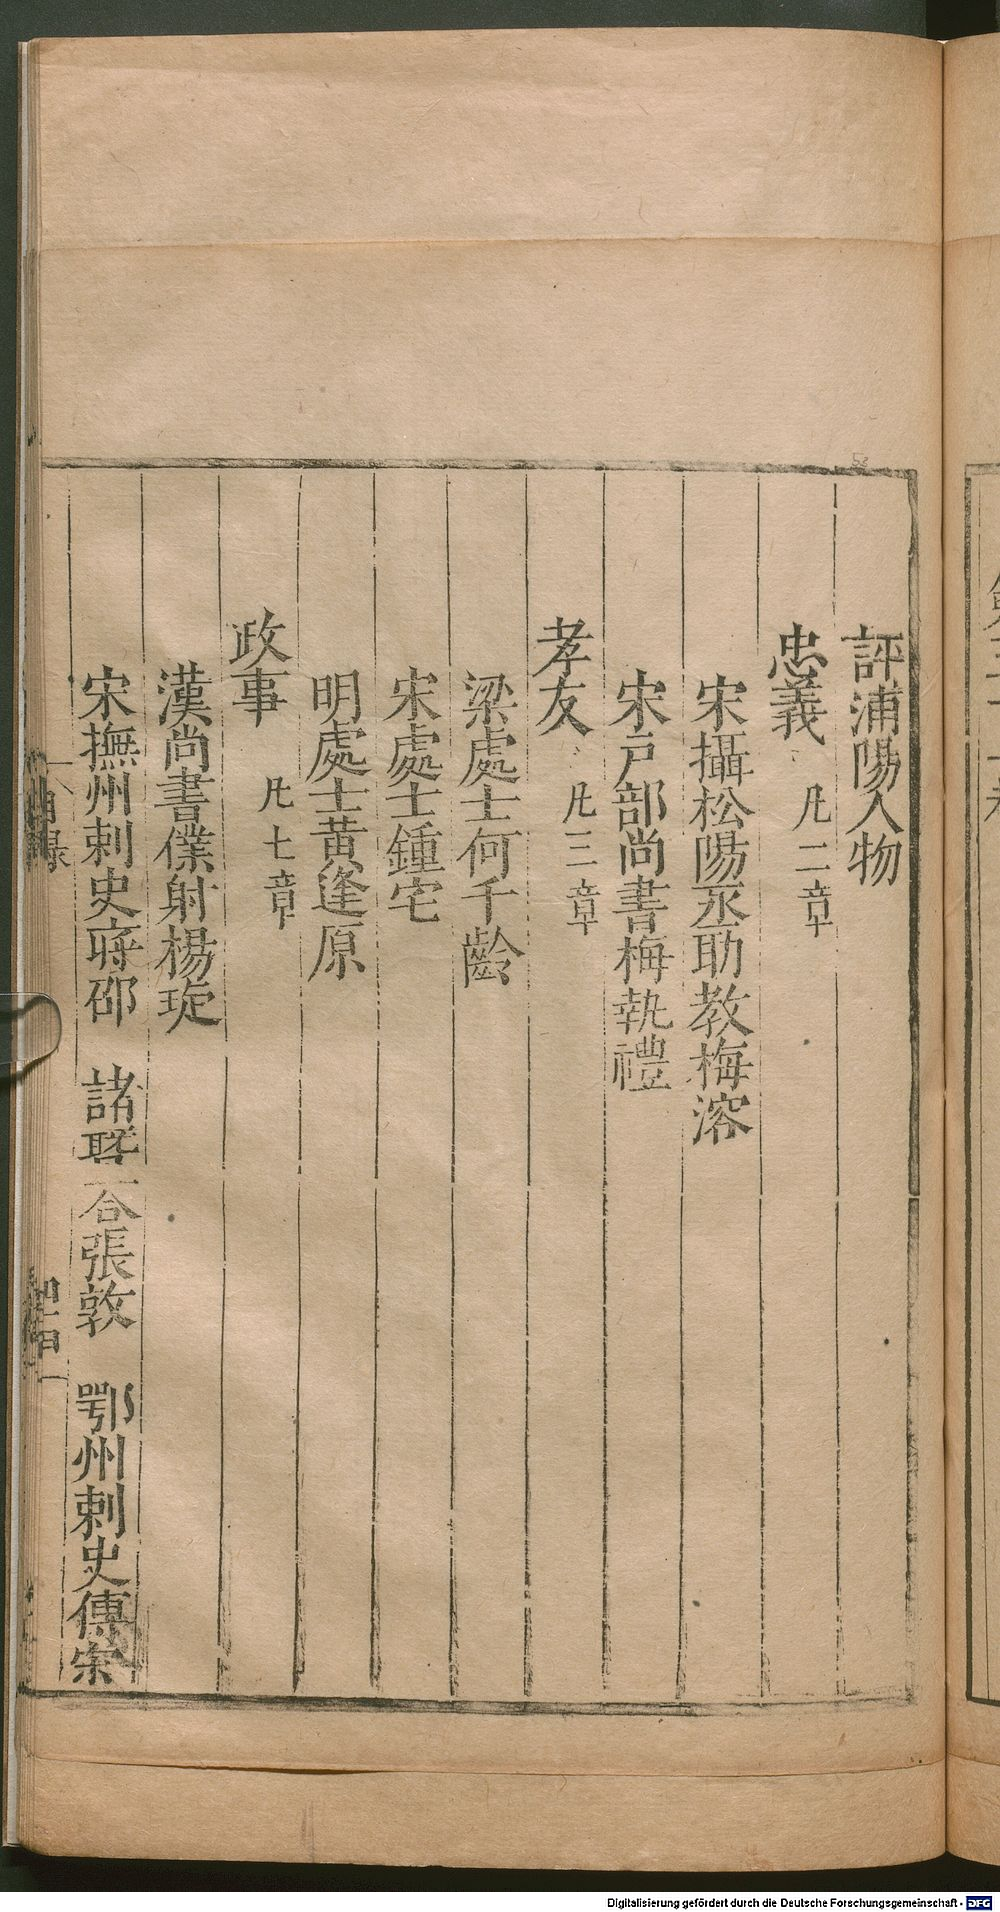 評浦陽人物
忠義 凡二章
宋攝松陽丞助教梅溶
宋戶部尚書梅執禮
孝友 凡三章
梁處士何千齡
宋處士鍾宅
明處士黃逢原
政事 凡七章
漢尚書僕射楊琁
宋撫州刺史蔣邵 諸 張敦 鄂州刺史傅
目錄
Digitalisierung gefördert durch die Deutsche Forschungsgemeinschaft - DFG